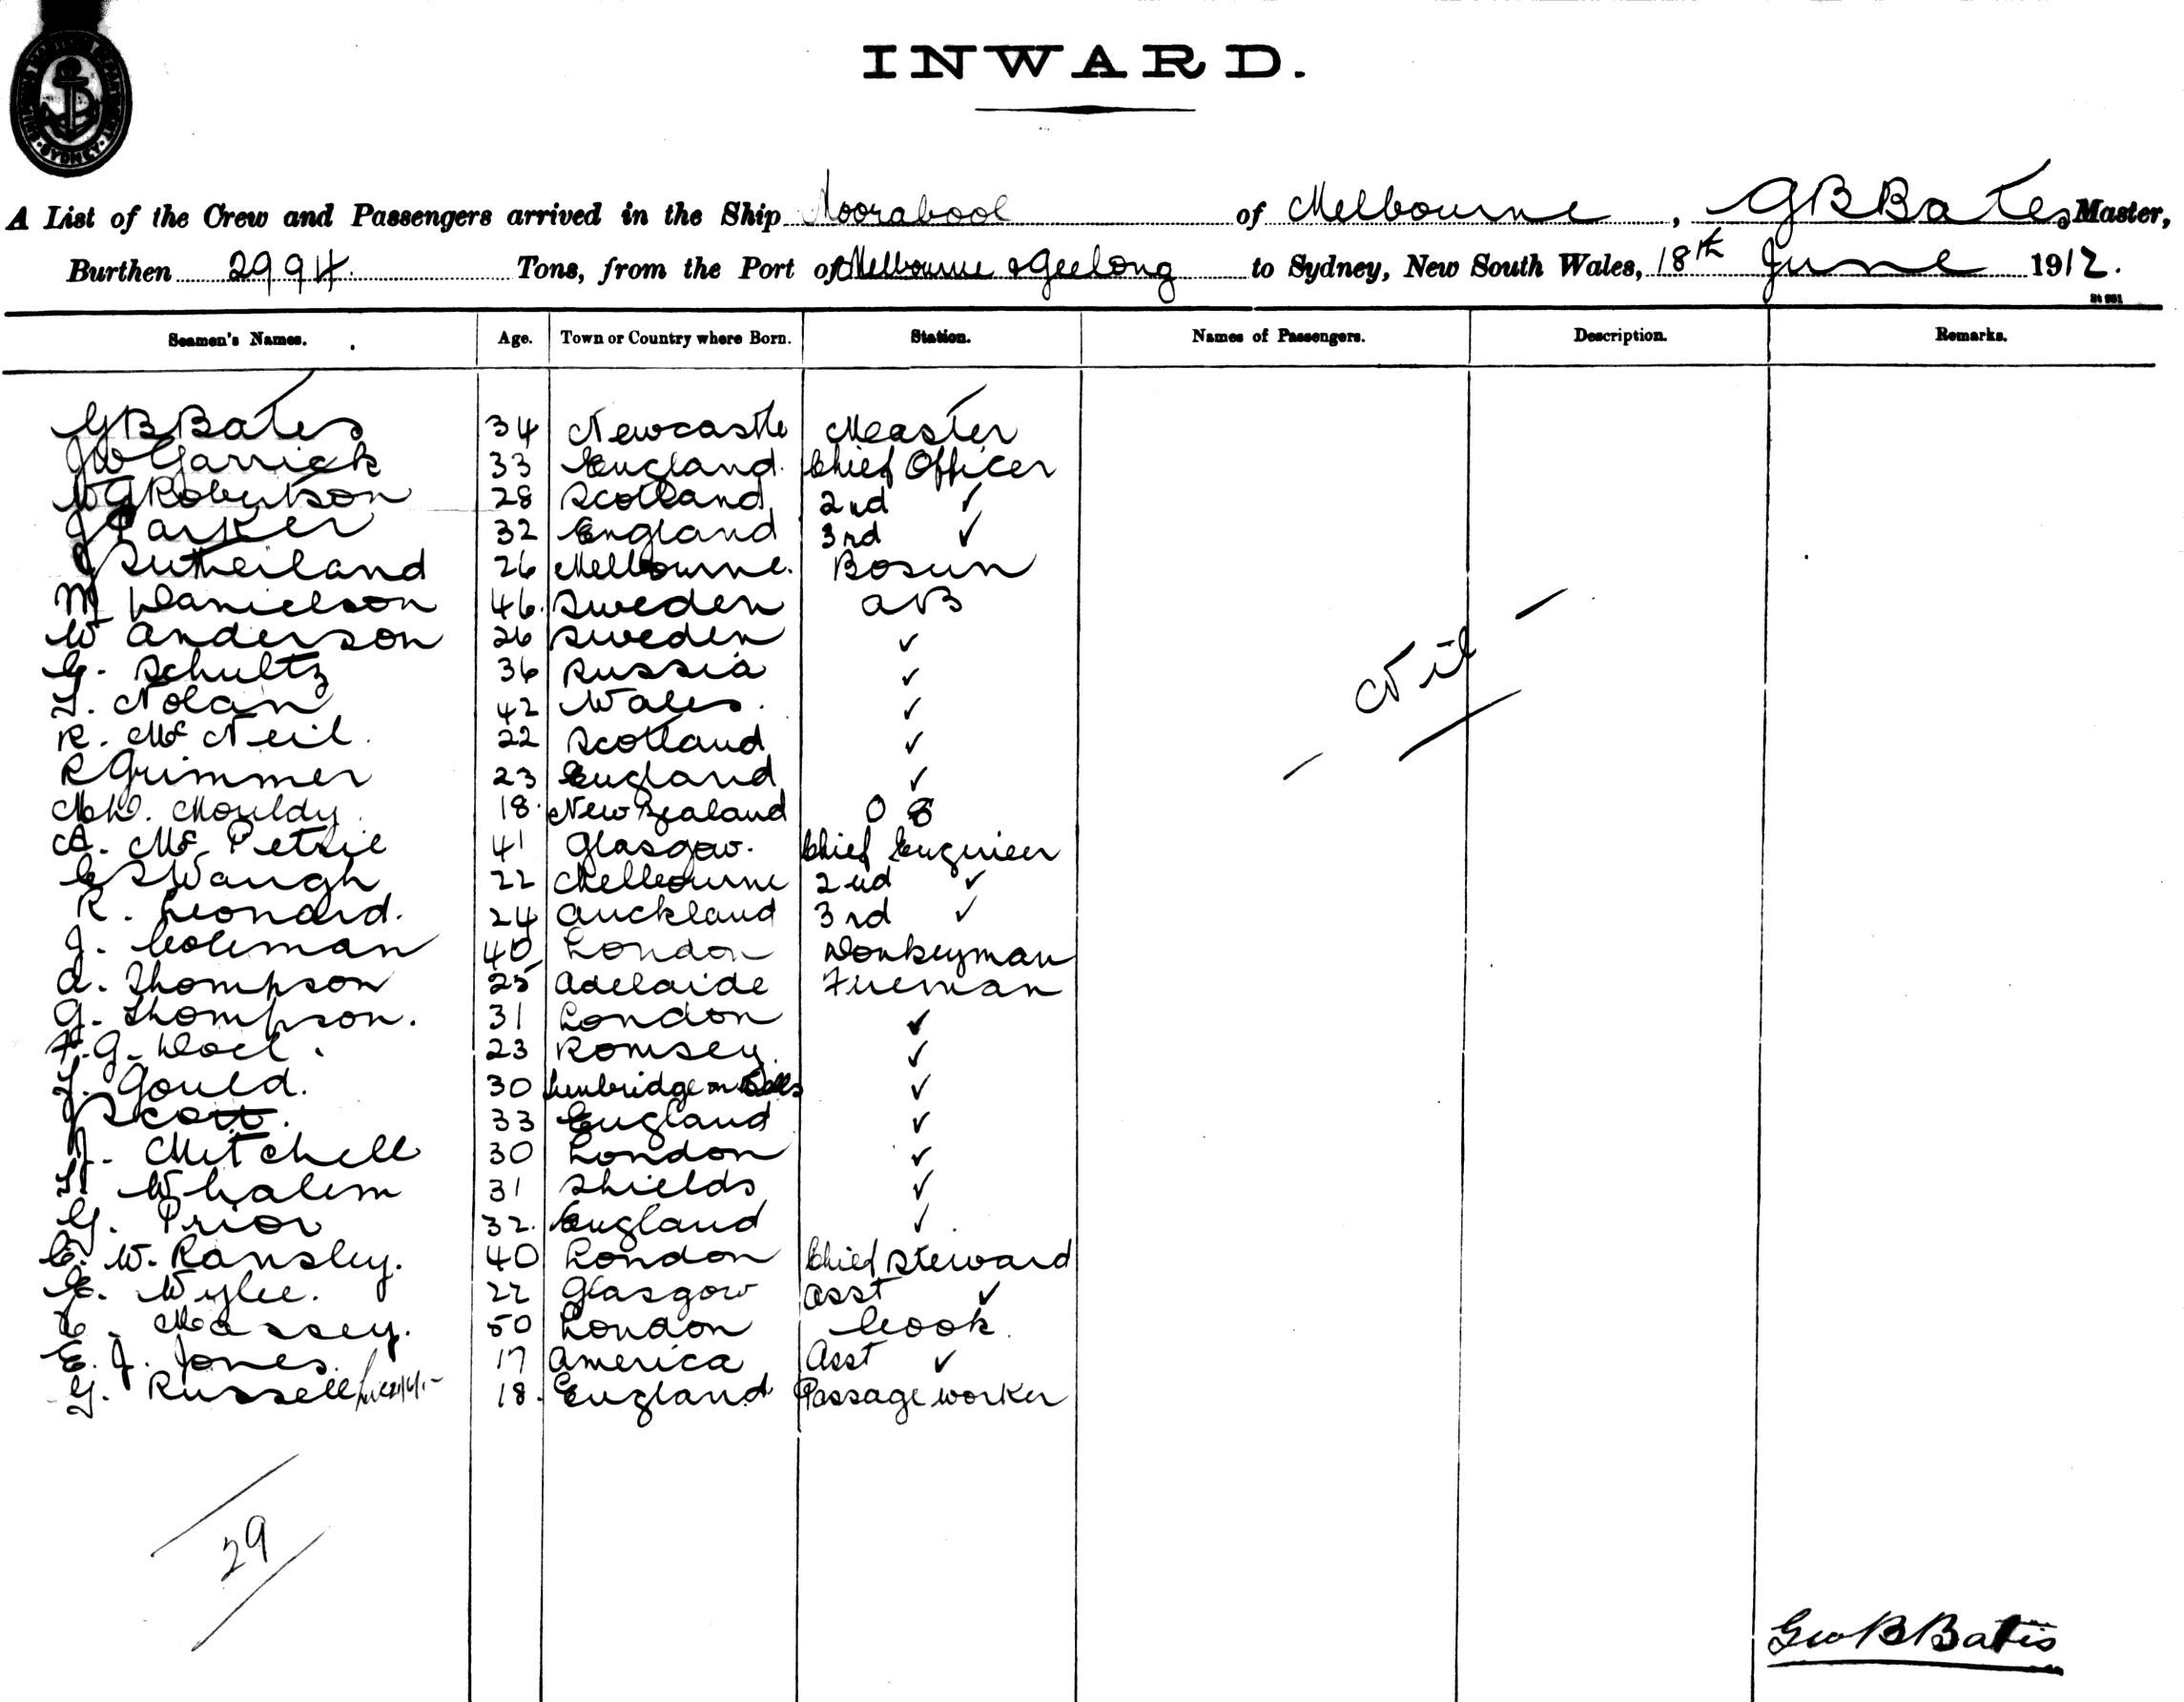 SYDNEY
INWARD.
A List of the Crew and Passengers arrived in the Ship Moorabool of Melbourne, G B Bates Master,
Burthen 2994 Tons, from the Port of Melbourne & Geelong to Sydney, New South Wales, 18th June 1912.
Seamen's Names. Age. Town or Country where Born. Station. Names of Passengers. Description. Remarks.
G B Bates 34 Newcastle Master
J W Garrick 33 England. Chief Officer
W G Robertson 28 Scotland 2nd ✓
J Parker 32 England 3rd ✓
J Sutherland 26 Melbourne. Bosun
M Danielson 46. Sweden AB
W Anderson 26 Sweden ✓
G. Schultz 36 Russia ✓
T. Nolan 42 Wales. ✓
R. Mc Neil. 22 Scotland ✓
R Grimmer 23 England ✓
Nil
Mouldy. 18. New Zealand O S
A. Mc Petrie 41 Glasgow. Chief Engineer
C S Waugh 22 Melbourne 2nd ✓
R. Leonard. 24 Auckland 3rd ✓
J. Coleman 40 London Donkeyman
A. Thompson 25 Adelaide Fireman
G. Thompson. 31 London ✓
F. G. Doel. 23 Romsey. ✓
T. Gould. 30 Tunbridge Wells ✓
J Scott. 33 England ✓
J. Mitchell 30 London ✓
H Whalem 31 Shields ✓
G. Prior 32. England ✓.
C. W. Ransley. 40 London Chief Steward
E. Wylie. 22 Glasgow Asst ✓
C. Massey. 50 London Cook.
E. J. Jones. 17 America Asst ✓
G. Russell 18. England Passage worker
29
Geo B Bates